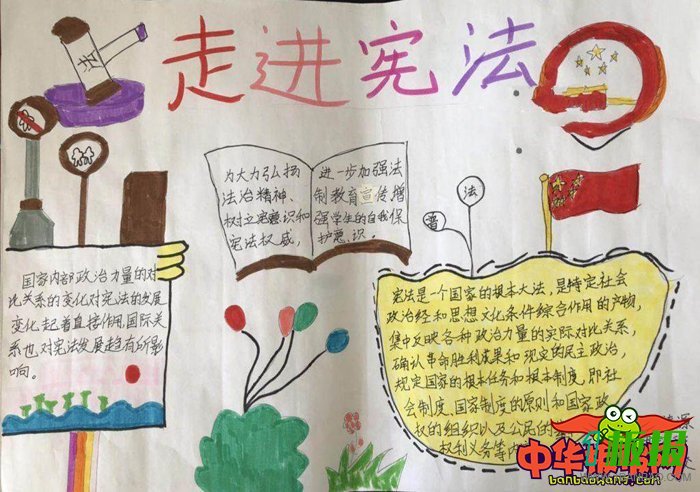 走进宪法
法
为大力弘扬
法治精神、
树立宪意识和
宪法权威,
进一步加强法
制教育宣传增
强学生的自我保
护意识。
普
法
国家内部政治力量的对
比关系的变化对宪法的发展
变化起着直接作用,国际关
系也对宪法发展趋有所影
响。
宪法是一个国家的根本大法,是特定社会
政治经和思想文化条件综合作用的产物,
集中反映各种政治力量的实际对比关系,
确认革命胜利成果和现实的民主政治,
规定国家的根本任务和根本制度,即社
会制度、国家制度的原则和国家政
权的组织以及公民的
权利义务等内
中华
报网
banbaowang.com